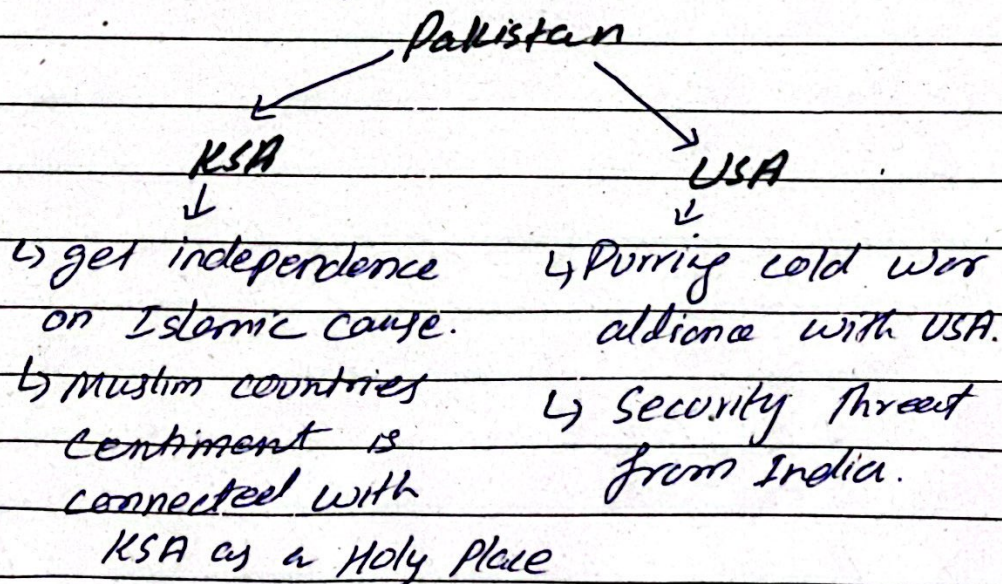 Pakistan
KSA
USA
↳ get independence
on Islamic cause.
↳ Muslim countries
centiment is
connected with
KSA as a Holy Place
↳ Durrig cold war
aldiance with USA.
↳ Security threat
from India.